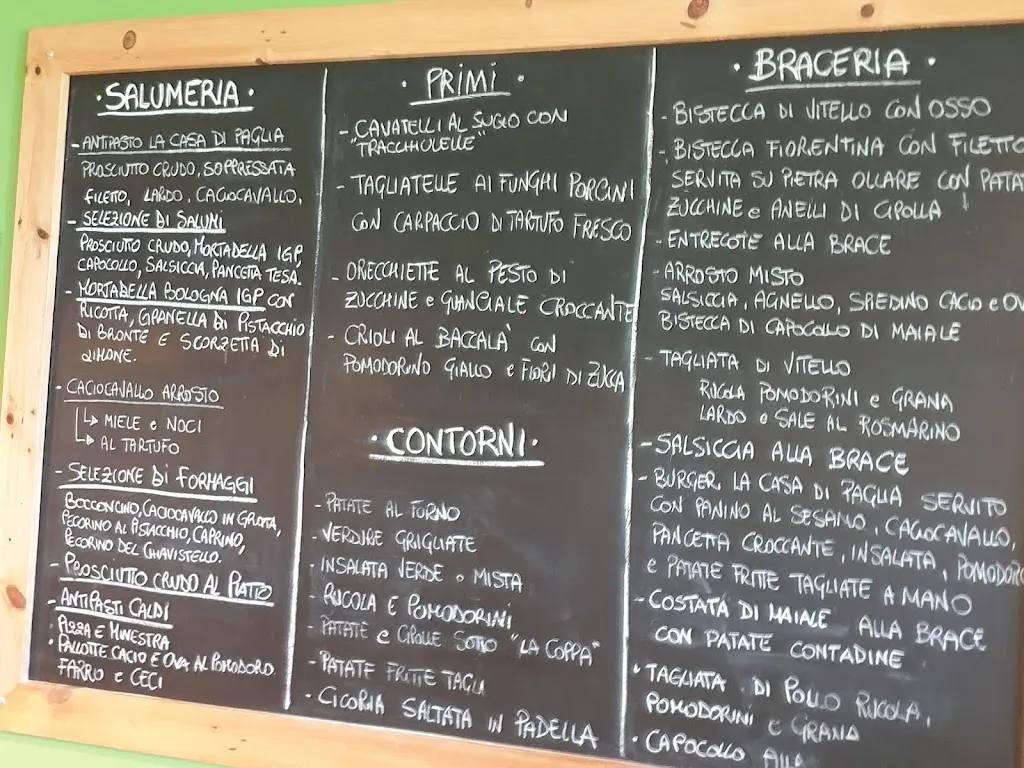 · SALUMERIA ·
- ANTIPASTO LA CASA DI PAGLIA
PROSCIUTTO CRUDO, SOPPRESSATA
FILETTO, LARDO, CACIOCAVALLO,
- SELEZIONE DI SALUMI
PROSCIUTTO CRUDO, MORTADELLA IGP,
CAPOCOLLO, SALSICCIA, PANCETTA TESA.
- MORTADELLA BOLOGNA IGP CON
RICOTTA, GRANELLA DI PISTACCHIO
DI BRONTE E SCORZETTA DI
LIMONE.
- CACIOCAVALLO ARROSTO
↳ MIELE e NOCI
↳ AL TARTUFO
- SELEZIONE DI FORMAGGI
BOCCONCINO, CACIOCAVALLO IN GROTTA,
PECORINO AL PISTACCHIO, CAPRINO,
PECORINO DEL CHIAVISTELLO.
- PROSCIUTTO CRUDO AL PIATTO
- ANTIPASTI CALDI
PIZZA E MINESTRA
· PALLOTTE CACIO E OVA AL POMODORO
FARRO e CECI
· PRIMI ·
- CAVATELLI AL SUGO CON
"TRACCHIULELLE"
- TAGLIATELLE AI FUNGHI PORCINI
CON CARPACCIO DI TARTUFO FRESCO
- ORECCHIETTE AL PESTO DI
ZUCCHINE e GUANCIALE CROCCANTE
- CRIOLI AL BACCALÀ CON
POMODORINO GIALLO e FIORI DI ZUCCA
· CONTORNI ·
- PATATE AL FORNO
- VERDURE GRIGLIATE
- INSALATA VERDE o MISTA
RUCOLA E POMODORINI
- PATATE e CIPOLLE SOTTO "LA COPPA"
- PATATE FRITTE TAGLI
- CICORIA SALTATA IN PADELLA
· BRACERIA ·
- BISTECCA DI VITELLO CON OSSO
- BISTECCA FIORENTINA CON FILETTO
SERVITA SU PIETRA OLLARE CON PATA
ZUCCHINE e ANELLI DI CIPOLLA
- ENTRECOTE ALLA BRACE
- ARROSTO MISTO
SALSICCIA, AGNELLO, SPIEDINO CACIO e OV
BISTECCA DI CAPOCOLLO DI MAIALE
- TAGLIATA DI VITELLO
RUCOLA POMODORINI e GRANA
LARDO e SALE AL ROSMARINO
- SALSICCIA ALLA BRACE
- BURGER LA CASA DI PAGLIA SERVITO
CON PANINO AL SESAMO, CACIOCAVALLO,
PANCETTA CROCCANTE, INSALATA, POMODOR
e PATATE FRITTE TAGLIATE A MANO
- COSTATA DI MAIALE ALLA BRACE
CON PATATE CONTADINE
· TAGLIATA DI POLLO RUCOLA,
POMODORINI E GRANA
· CAPOCOLLO ALL